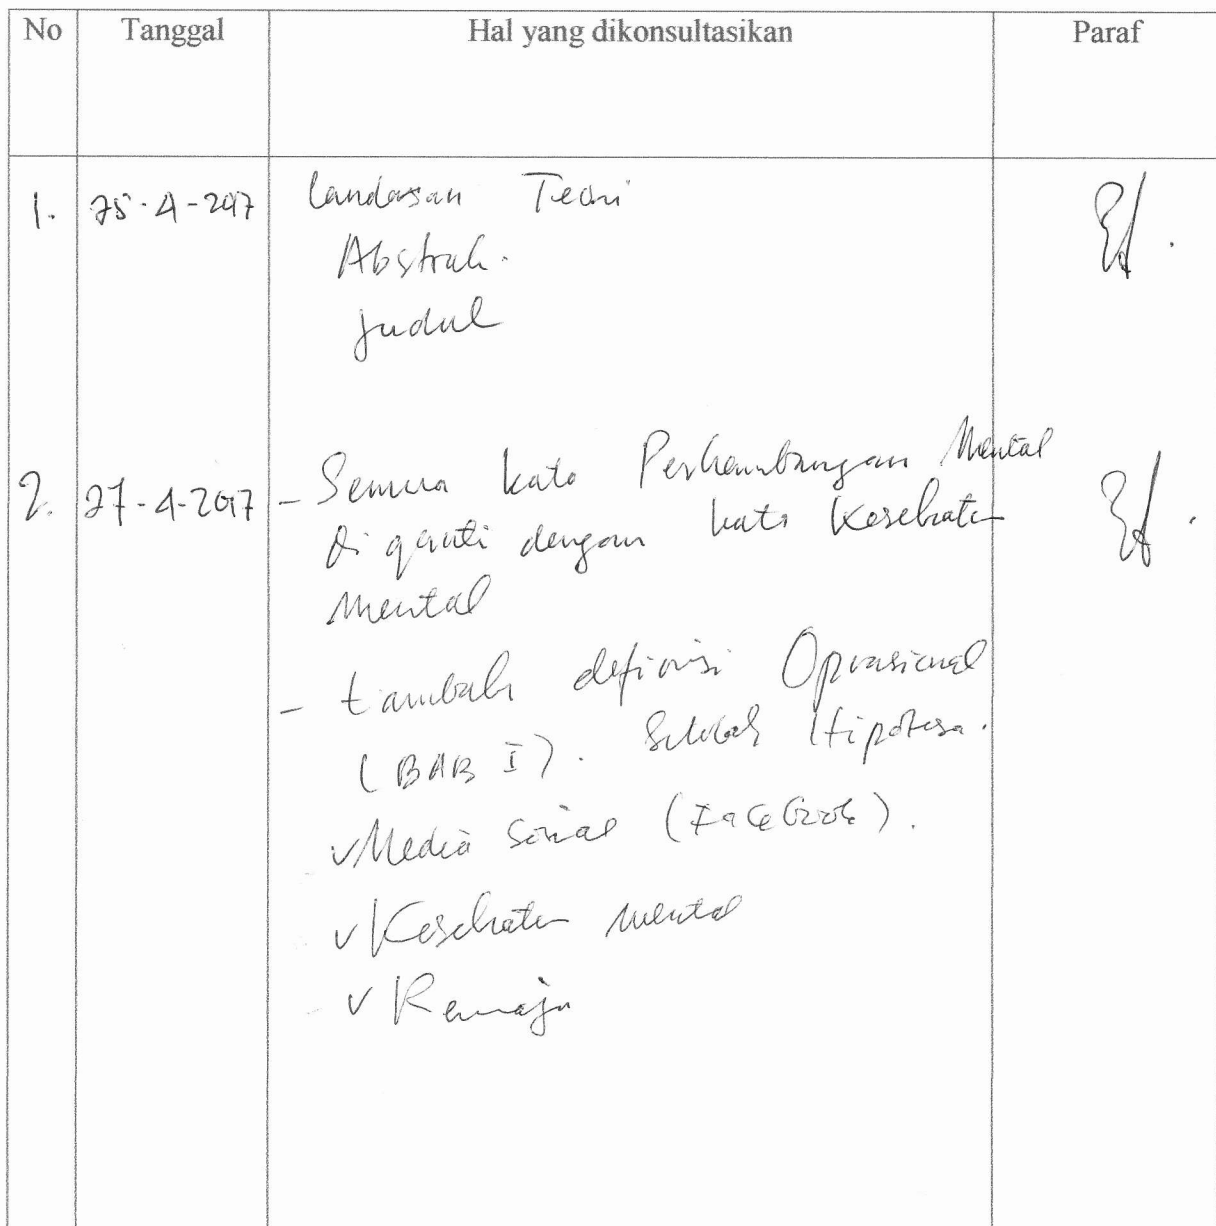 No Tanggal Hal yang dikonsultasikan Paraf
1. 25-4-2017 Landasan Teori
Abstrak.
Judul
2. 27-4-2017 - Semua kata Perkembangan Mental
di ganti dengan kata Kesehatan
Mental
- tambah definisi Oprasional
(BAB I). Hipotesa.
v Media Sosial (Facebook).
v Kesehatan mental
v Remaja